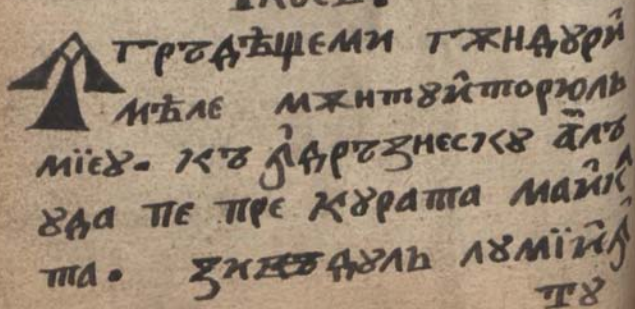 Ꙟгръдѣщеми гѫндꙋрй
мѣле мѫнтꙋйторюль
мїеꙋ. къ ꙟдръзнескꙋ а̂лъ
ꙋда пе пре кꙋрата майк
та. дꙋль лꙋмїй ꙟ
тꙋ